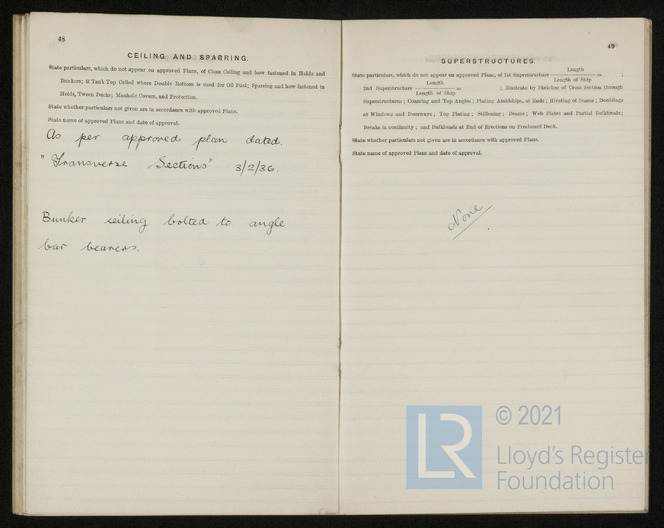 48
CEILING AND SPARRING.
State particulars, which do not appear on approved Plans, of Close Ceiling and how fastened in Holds and
Bunkers; if Tank Top Ceiled where Double Bottom is used for Oil Fuel; Sparring and how fastened in
Holds, Tween Decks; Manhole Covers, and Protection.
State whether particulars not given are in accordance with approved Plans.
State name of approved Plans and date of approval.
As per approved plan dated.
"Transverse Sections" 3/2/36.
Bunker ceiling bolted to angle
bar bearers.
49
SUPERSTRUCTURES.
State particulars, which do not appear on approved Plans, of 1st Superstructure Length / Length of Ship = ;
2nd Superstructure Length / Length of Ship = ; illustrate by Sketches of Cross Section through
Superstructures; Coaming and Top Angles; Plating Amidships, at Ends; Riveting of Seams; Doublings
at Windows and Doorways; Top Plating; Stiffening; Beams; Web Plates and Partial Bulkheads;
Breaks in continuity; and Bulkheads at End of Erections on Freeboard Deck.
State whether particulars not given are in accordance with approved Plans.
State name of approved Plans and date of approval.
None
LR
© 2021
Lloyd's Register
Foundation